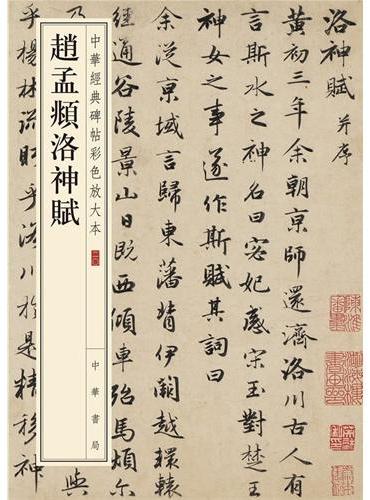 洛神賦 并序
黃初三年余朝京師還濟洛川古人有
言斯水之神名曰宓妃感宋玉對楚王
神女之事遂作斯賦其詞曰
余從京域言歸東藩背伊闕越轘轅
經通谷陵景山日既西傾車殆馬煩尔
乃
與
乎楊林流眄乎洛川於是精移神
中華經典碑帖彩色放大本
趙孟頫洛神賦
中華書局